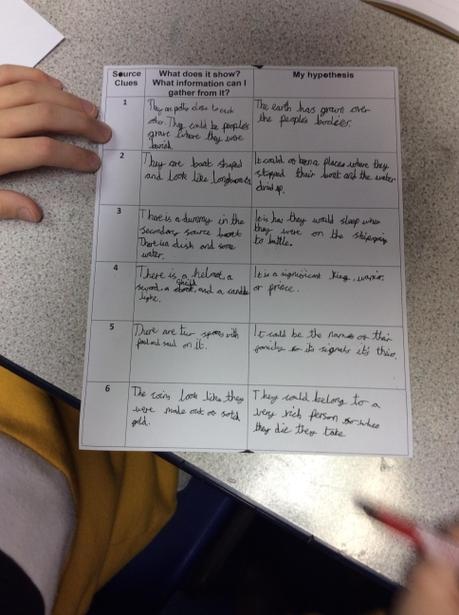 Source Clues
What does it show? What information can I gather from it?
My hypothesis
1
They are pottle close to each
other. They could be people's
grave where they were
buried.
The earth has grave over
the people's bodies.
2
They are boat shaped
and look like longboats
It could a been a places where they
stopped their boat and the water
dried up.
3
There is a dummy in the
secondary source boat
There is a dish and some
water.
It is how they would sleep when
they were on the ship going
to battle.
4
There is a helmet, a
sword, a shield, and a candle
light.
It is a significant king, warrior,
or prince.
5
There are two spoons with
paul and saul on it.
It could be the names of their
family or its signals it's this.
6
The coins look like they
were made out of solid
gold.
They could belong to a
very rich person so when
they die they take